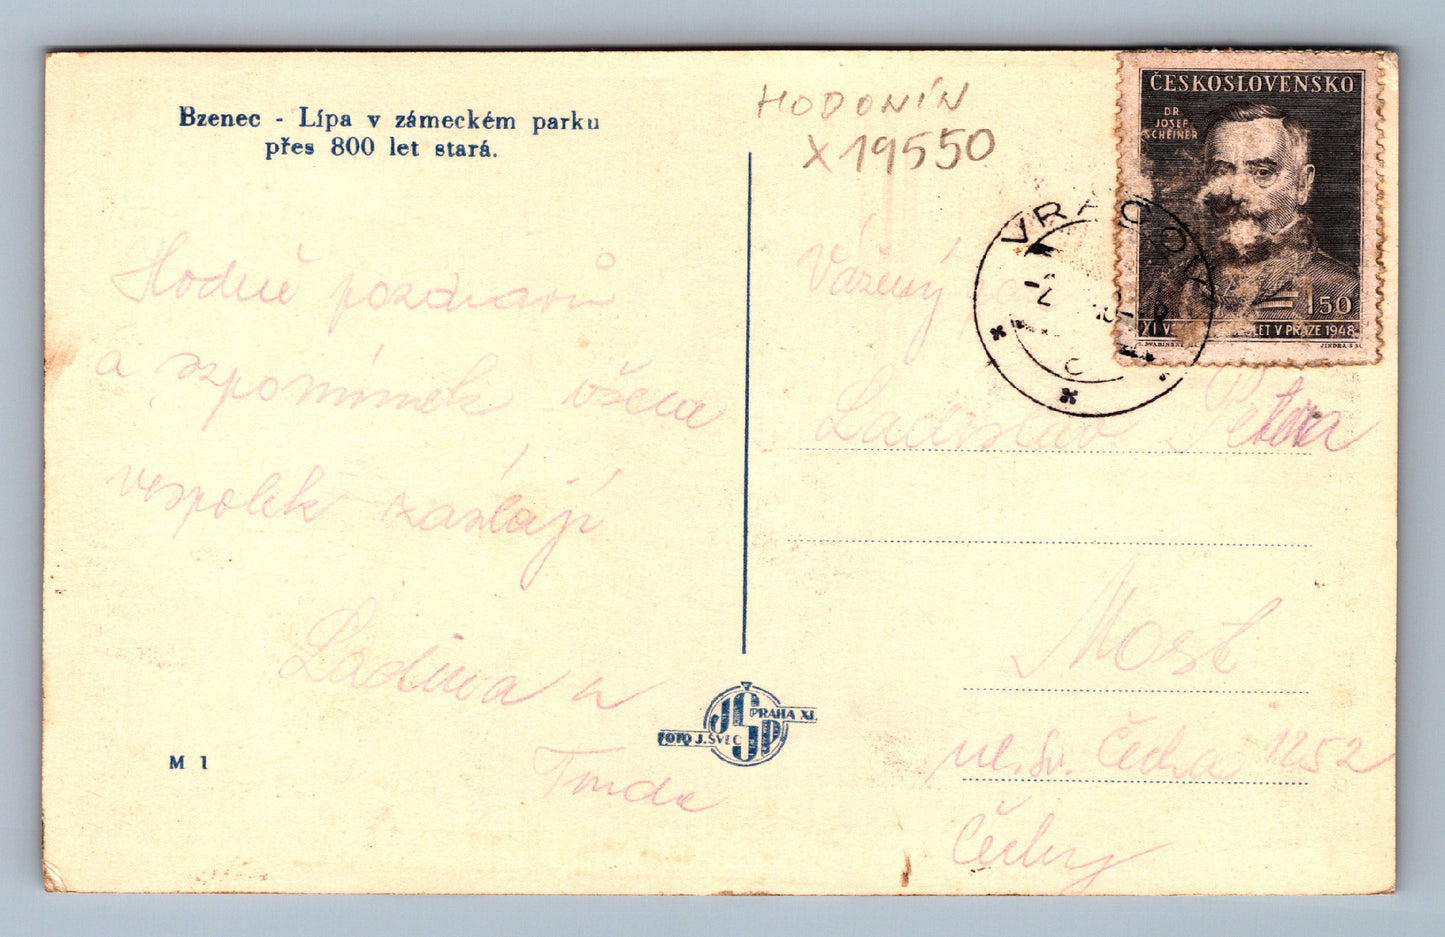 Bzenec - Lípa v zámeckém parku
přes 800 let stará.
HODONÍN
X 19550
ČESKOSLOVENSKO
DR
JOSEF
SCHEINER
1'50
XI V LET V PRAZE 1948
JINDRA
VRACOV
C
Hodně pozdravů
a vzpomínek všem
vespolek zasílají
Ladina
Vážený
Ladislav
Most
ul. Sv. Čecha 1252
Čechy
M 1
FOTO J. ŠVEC
PRAHA XI.
JŠP